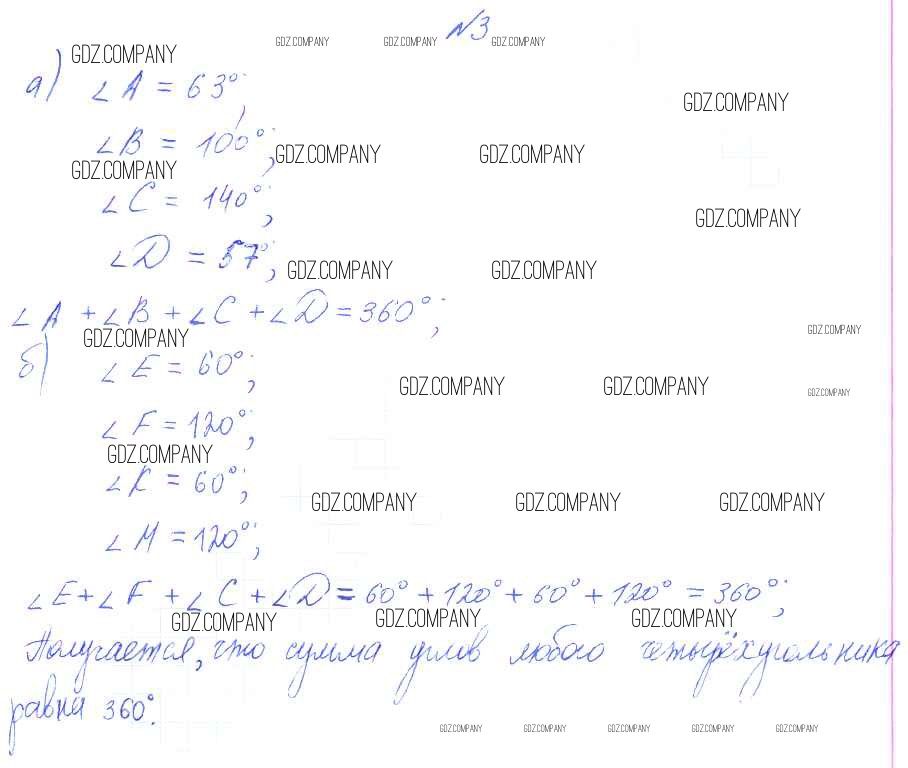 №3
GDZ.COMPANY GDZ.COMPANY GDZ.COMPANY
GDZ.COMPANY
а) ∠A = 63°;
GDZ.COMPANY
∠B = 100°;
GDZ.COMPANY GDZ.COMPANY
GDZ.COMPANY
∠C = 140°;
GDZ.COMPANY
∠D = 57°;
GDZ.COMPANY GDZ.COMPANY
∠A + ∠B + ∠C + ∠D = 360°;
GDZ.COMPANY
GDZ.COMPANY
б) ∠E = 60°;
GDZ.COMPANY GDZ.COMPANY GDZ.COMPANY
∠F = 120°;
GDZ.COMPANY
∠K = 60°;
GDZ.COMPANY GDZ.COMPANY GDZ.COMPANY
∠M = 120°;
∠E + ∠F + ∠C + ∠D = 60° + 120° + 60° + 120° = 360°;
GDZ.COMPANY GDZ.COMPANY GDZ.COMPANY
Получается, что сумма углов любого четырёхугольника
равна 360°.
GDZ.COMPANY GDZ.COMPANY GDZ.COMPANY GDZ.COMPANY GDZ.COMPANY